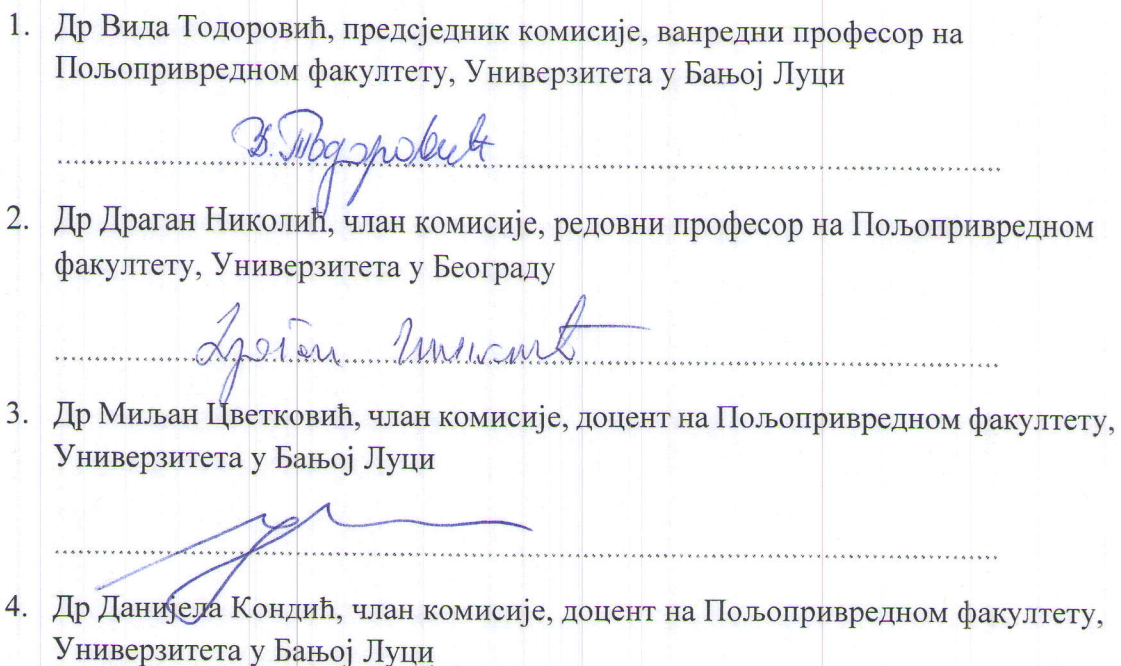 1. Др Вида Тодоровић, предсједник комисије, ванредни професор на
Пољопривредном факултету, Универзитета у Бањој Луци
В. Тодоровић
2. Др Драган Николић, члан комисије, редовни професор на Пољопривредном
факултету, Универзитета у Београду
3. Др Миљан Цветковић, члан комисије, доцент на Пољопривредном факултету,
Универзитета у Бањој Луци
4. Др Данијела Кондић, члан комисије, доцент на Пољопривредном факултету,
Универзитета у Бањој Луци